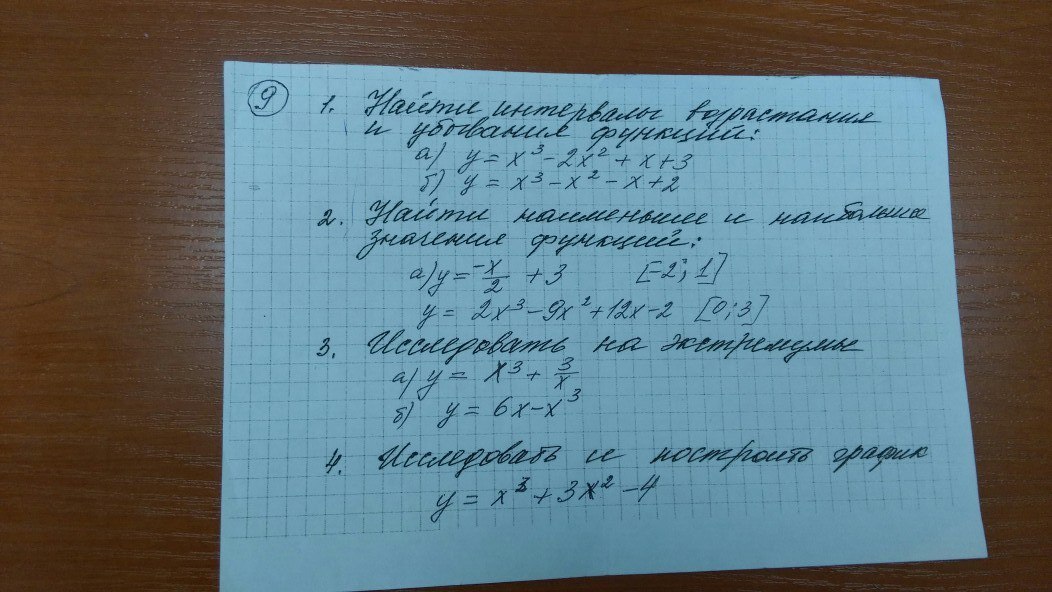 9
1. Найти интервалы возрастания
и убывания функций:
а) y = x³ - 2x² + x + 3
б) y = x³ - x² - x + 2
2. Найти наименьшее и наибольшее
значения функций:
а) y = -x/2 + 3 [-2; 1]
y = 2x³ - 9x² + 12x - 2 [0; 3]
3. Исследовать на экстремумы
а) y = x³ + 3/x
б) y = 6x - x³
4. Исследовать и построить график
y = x³ + 3x² - 4